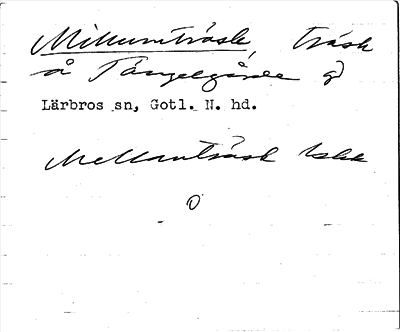 Millumträsk, träsk
å Tängelgårda
Lärbros sn, Gotl. N. hd.
Mellanträsk